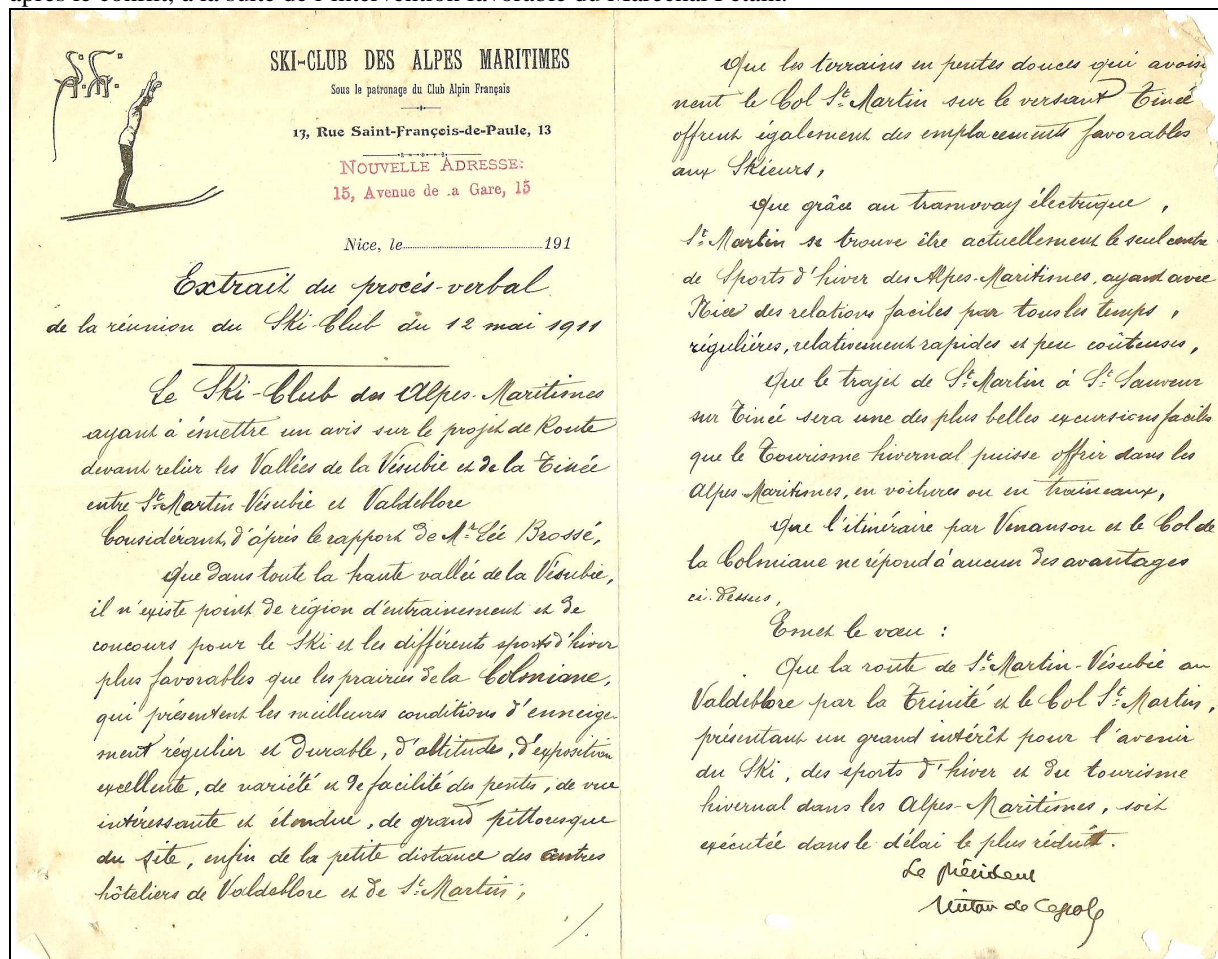 après le conflit, à la suite de l'intervention favorable du Maréchal Pétain.
SKI-CLUB DES ALPES MARITIMES
Sous le patronage du Club Alpin Français
13, Rue Saint-François-de-Paule, 13
NOUVELLE ADRESSE:
15, Avenue de .a Gare, 15
Nice, le 191
Extrait du procés-verbal
de la réunion du Ski-Club du 12 mai 1911
Le Ski-Club des Alpes-Maritimes
ayant à émettre un avis sur le projet de Route
devant relier les Vallées de la Vésubie et de la Tinée
entre St Martin-Vésubie et Valdeblore
Considérant, d'après le rapport de Mr Lée Brossé,
Que dans toute la haute vallée de la Vésubie,
il n'existe point de région d'entrainement et de
concours pour le Ski et les différents sports d'hiver
plus favorables que les prairies de la Colmiane,
qui présentent les meilleures conditions d'enneige-
ment régulier et durable, d'altitude, d'exposition
excellente, de variété et de facilité des pentes, de vue
intéressante et étendue, de grand pittoresque
du site, enfin de la petite distance des centres
hôteliers de Valdeblore et de St Martin;
./.
Que les terrains en pentes douces qui avoisi
nent le Col St Martin sur le versant Tinée
offrent également des emplacements favorables
aux Skieurs,
Que grâce au tramway électrique,
St Martin se trouve être actuellement le seul centre
de Sports d'hiver des Alpes-Maritimes, ayant avec
Nice des relations faciles par tous les temps,
régulières, relativement rapides et peu coûteuses,
Que le trajet de St Martin à St Sauveur
sur Tinée sera une des plus belles excursions faciles
que le Tourisme hivernal puisse offrir dans les
Alpes-Maritimes, en voitures ou en traineaux,
Que l'itinéraire par Venanson et le Col de
la Colmiane ne répond à aucun des avantages
ci-dessus,
Emet le vœu :
Que la route de St Martin-Vésubie au
Valdeblore par la Trinité et le Col St Martin,
présentant un grand intérêt pour l'avenir
du Ski, des sports d'hiver et du tourisme
hivernal dans les Alpes-Maritimes, soit
exécutée dans le délai le plus réduit.
Le président
de Cessole